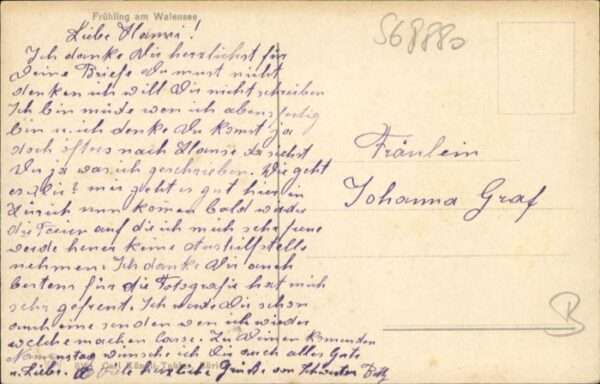 Frühling am Walensee
568880
Liebe Hanni!
Ich danke Dir herzlichst für
Deine Briefe Du must nicht
denken ich will Dir nicht schreiben
Ich bin müde wen ich abens fertig
bin u. ich denke Du komst ja
doch öfters nach Hause da siehst
Du ja was ich geschrieben. Wie geht
es Dir? mir geht es gut hier in
Zürich nun komen bald wieder
die Feier auf die ich mich sehr freue
werde heuer keine Aushilfstelle
nehmen. Ich danke Dir auch
bestens für die Fotografie hat mich
sehr gefreut. Ich werde Dir schon
auch eine senden wen ich wieder
welche machen lasse. Zu Deinem komenden
Namenstag wünsche ich Dir auch alles Gute
u. Liebe. Viele herzliche Grüße von Schwester
Fräulein
Johanna Graf
B